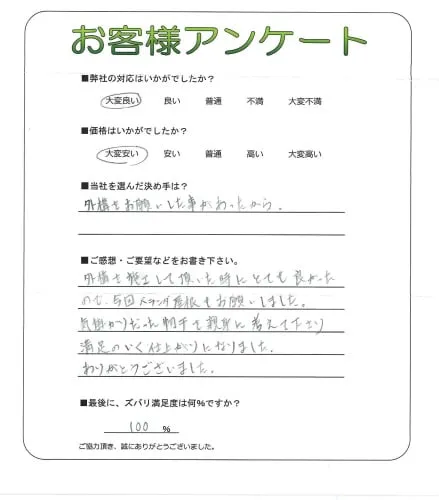 お客様アンケート
■弊社の対応はいかがでしたか？
大変良い 良い 普通 不満 大変不満
■価格はいかがでしたか？
大変安い 安い 普通 高い 大変高い
■当社を選んだ決め手は？
外構をお願いした事があったから。
■ご感想・ご要望などをお書き下さい。
外構を施工して頂いた時にとても良かった
ので、今回ベランダ屋根をお願いしました。
気掛かりだった を親身に考えて下さり
満足のいく仕上がりになりました。
ありがとうございました。
■最後に、ズバリ満足度は何%ですか？
100 %
ご協力頂き、誠にありがとうございました。